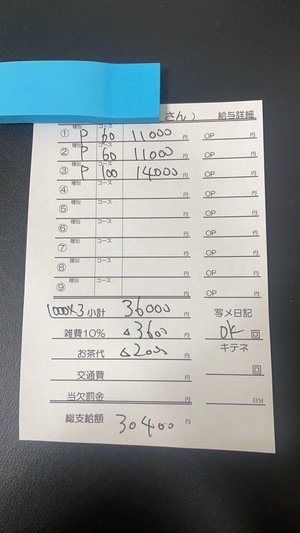 さん） 給与詳細
種別 コース
① P 60 11000 円 OP 円
種別 コース
② P 60 11000 円 OP 円
種別 コース
③ P 100 14000 円 OP 円
種別 コース
④ 円 OP 円
種別 コース
⑤ 円 OP 円
種別 コース
⑥ 円 OP 円
種別 コース
⑦ 円 OP 円
種別 コース
⑧ 円 OP 円
種別 コース
⑨ 円 OP 円
1000×3 小計 36000 円 写メ日記
雑費10% △3600 円 OK 回
お茶代 △2000 円 キテネ
交通費 円 回
当欠罰金 円
総支給額 30400 円